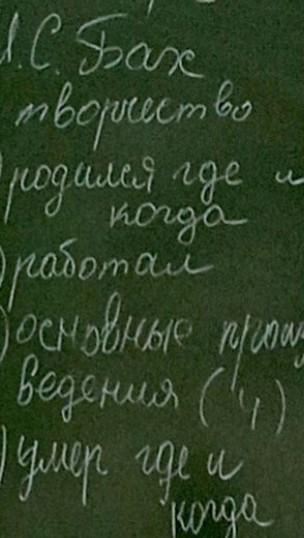 І. С. Бах
творчество
) родился где и
когда
) работал
) основные произ
ведения (4)
) умер где и
когда